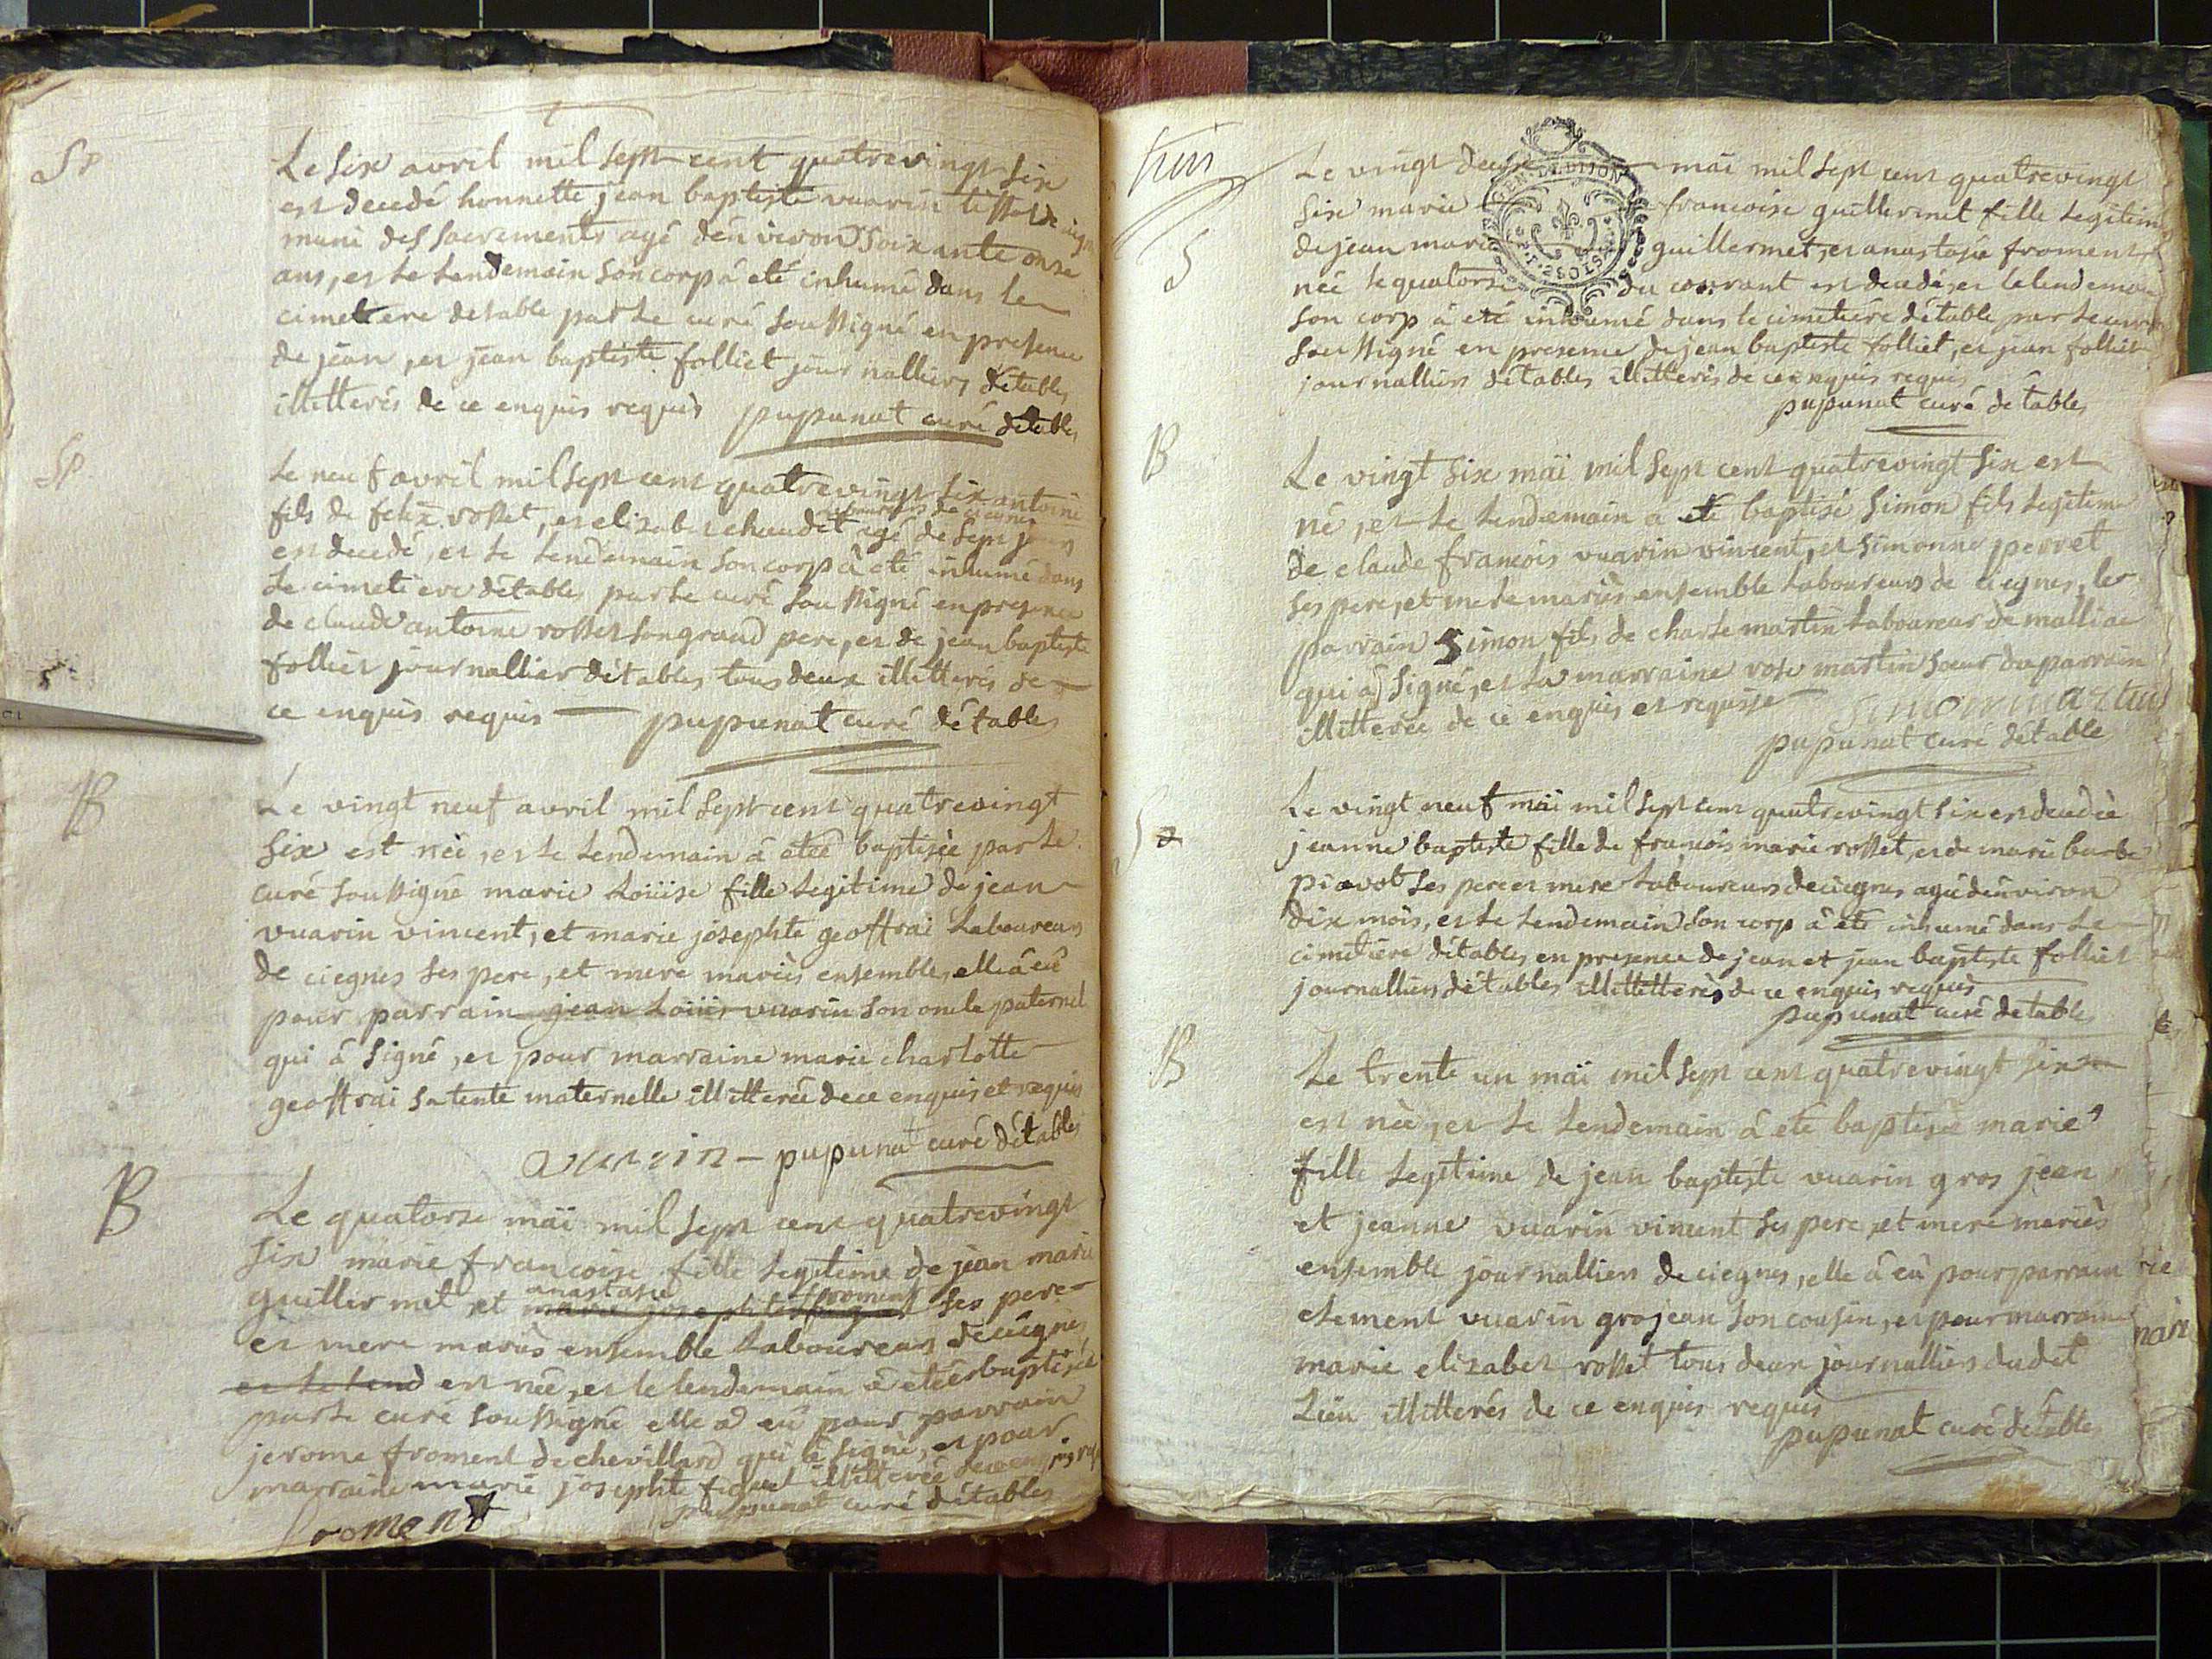 Sp
Le six avril mil sept cent quatrevingt six
est decedé honnette jean baptiste vuarin
muni des sacrements agé d'environ soixante onze
ans, et le lendemain son corp à eté inhumé dans le
cimettere detable par le curé soussigné en presence
de jean, et jean baptiste folliet journalliers détables
illitterés de ce enquis requis pupunat curé détables
Sp
Le neuf avril mil sept cent quatrevingt six antoine
laboureurs de ciegnes
fils de felix rosset, et elizabet chaudet agé de sept jours
est decedé, et le lendemain son corp à eté inhumé dans
le cimetiere détables par le curé soussigné en presence
de claude antoine rosset son grand pere, et de jean baptiste
folliet journallier détables tous deux illitterés de
ce enquis requis pupunat curé détables
B
Le vingt neuf avril mil sept cent quatrevingt
six est née, et le lendemain à etée baptisée par le
curé soussigné marie Loüise fille legitime de jean
vuarin vincent, et marie josephte geoffrai laboureurs
de ciegnes ses pere, et mere mariés ensembles, elle à eû
pour parrain jean Loüis vuarin son oncle paternel
qui à signé, et pour marraine marie charlotte
geoffrai sa tente maternelle illitterée de ce enquis et requis
pupunat curé détables
B
Le quatorse maï mil sept cent quatrevingt
six marie francoise fille legitime de jean marie
anastasie froment
guillermet et marie josephte ses pere
et mere mariés ensemble laboureurs de ciegnes
et le lend est née, et le lendemain à etée baptisée
par le curé soussigné elle à eû pour parrain
jerome froment de chevillard qui à signé, et pour
marraine marie josephte illitterée de ce enquis
pupunat curé détables
froment
S
Le vingt deux maï mil sept cent quatrevingt
GEN. DE DIJON
six marie francoise guillermet fille legitime
de jean marie guillermet, et anastasie froment
née le quatorse du courant est decedée, et le lendemain
son corp à eté inhumé dans le cimetiére détable par le curé
soussigné en presence de jean baptiste folliet, et jean folliet
journalliers détables illitterés de ce enquis requis
pupunat curé détables
B
Le vingt six maï mil sept cent quatrevingt six est
né, et le lendemain a eté baptisé simon fils legitime
de claude francois vuarin vincent, et simonne perret
ses pere, et mere mariés ensemble laboureurs de ciegnes, le
parrain Simon fils de charle martin laboureur de malliac
qui à signé, et la marraine rose martin soeur du parrain
illitterée de ce enquis et requisse simon martin
pupunat curé détable
S
Le vingt neuf maï mil sept cent quatrevingt six est decedée
jeanne baptiste fille de francois marie rosset, et de marie barbe
ses pere et mere laboureurs de ciegnes agée d'environ
dix mois, et le lendemain son corp à eté inhumé dans le
cimetiére détables, en presence de jean et jean baptiste folliet
journalliers détables illitterés de ce enquis requis
pupunat curé détables
B
Le trente un maï mil sept cent quatrevingt six
est née, et le lendemain à eté baptisée marie
fille legitime de jean baptiste vuarin gros jean
et jeanne vuarin vincent ses pere, et mere mariés
ensemble journalliers de ciegnes, elle à eû pour parrain
clement vuarin grojean son cousin, et pour marraine
marie elizabet rosset tous deux journalliers dudet
Lieu illitterés de ce enquis requis
pupunat curé détables